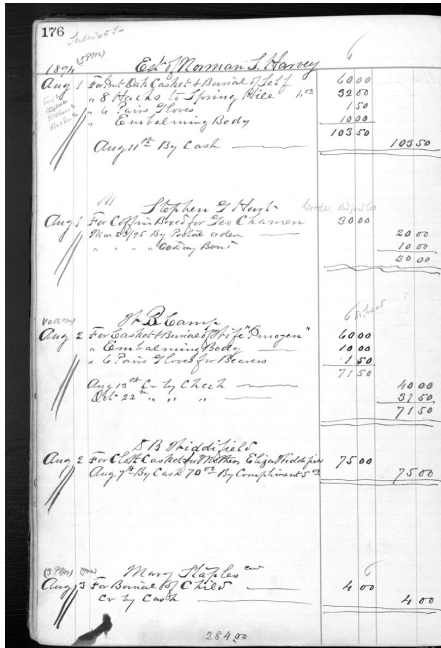 176
(5PM)
1894 Est of Norman S. Harvey 6
Aug 1 For Ant Oak Casket & Burial of Self 60 00
" 8 Hacks to Spring Hill 32 00
" 6 Pairs Gloves 1 50
" Embalming Body 10 00
103 50
Aug 11th By Cash 103 50
Stephen G Hurt
Aug 1 For Coffin Boxed for Geo 30 00
Mar 23/95 By Postal order 20 00
" " " " 10 00
W B Camp
Aug 2 For Casket & Burial of Wife "Imogen" 60 00
" Embalming Body 10 00
" 6 Pairs Gloves for Bearers 1 50
71 50
Aug 13th Cr by Check 40 00
Oct 22nd " " " 31 50
71 50
S B Widdifield
Aug 2 For Cloth Casket for Mother Eliza Widdifield 75 00
Aug 9th By Cash 70 00 By Compliment 5 00 75 00
(3 PM)
Mary Staples
Aug 3 For Burial of Child 4 00
Cr by Cash 4 00
284.00